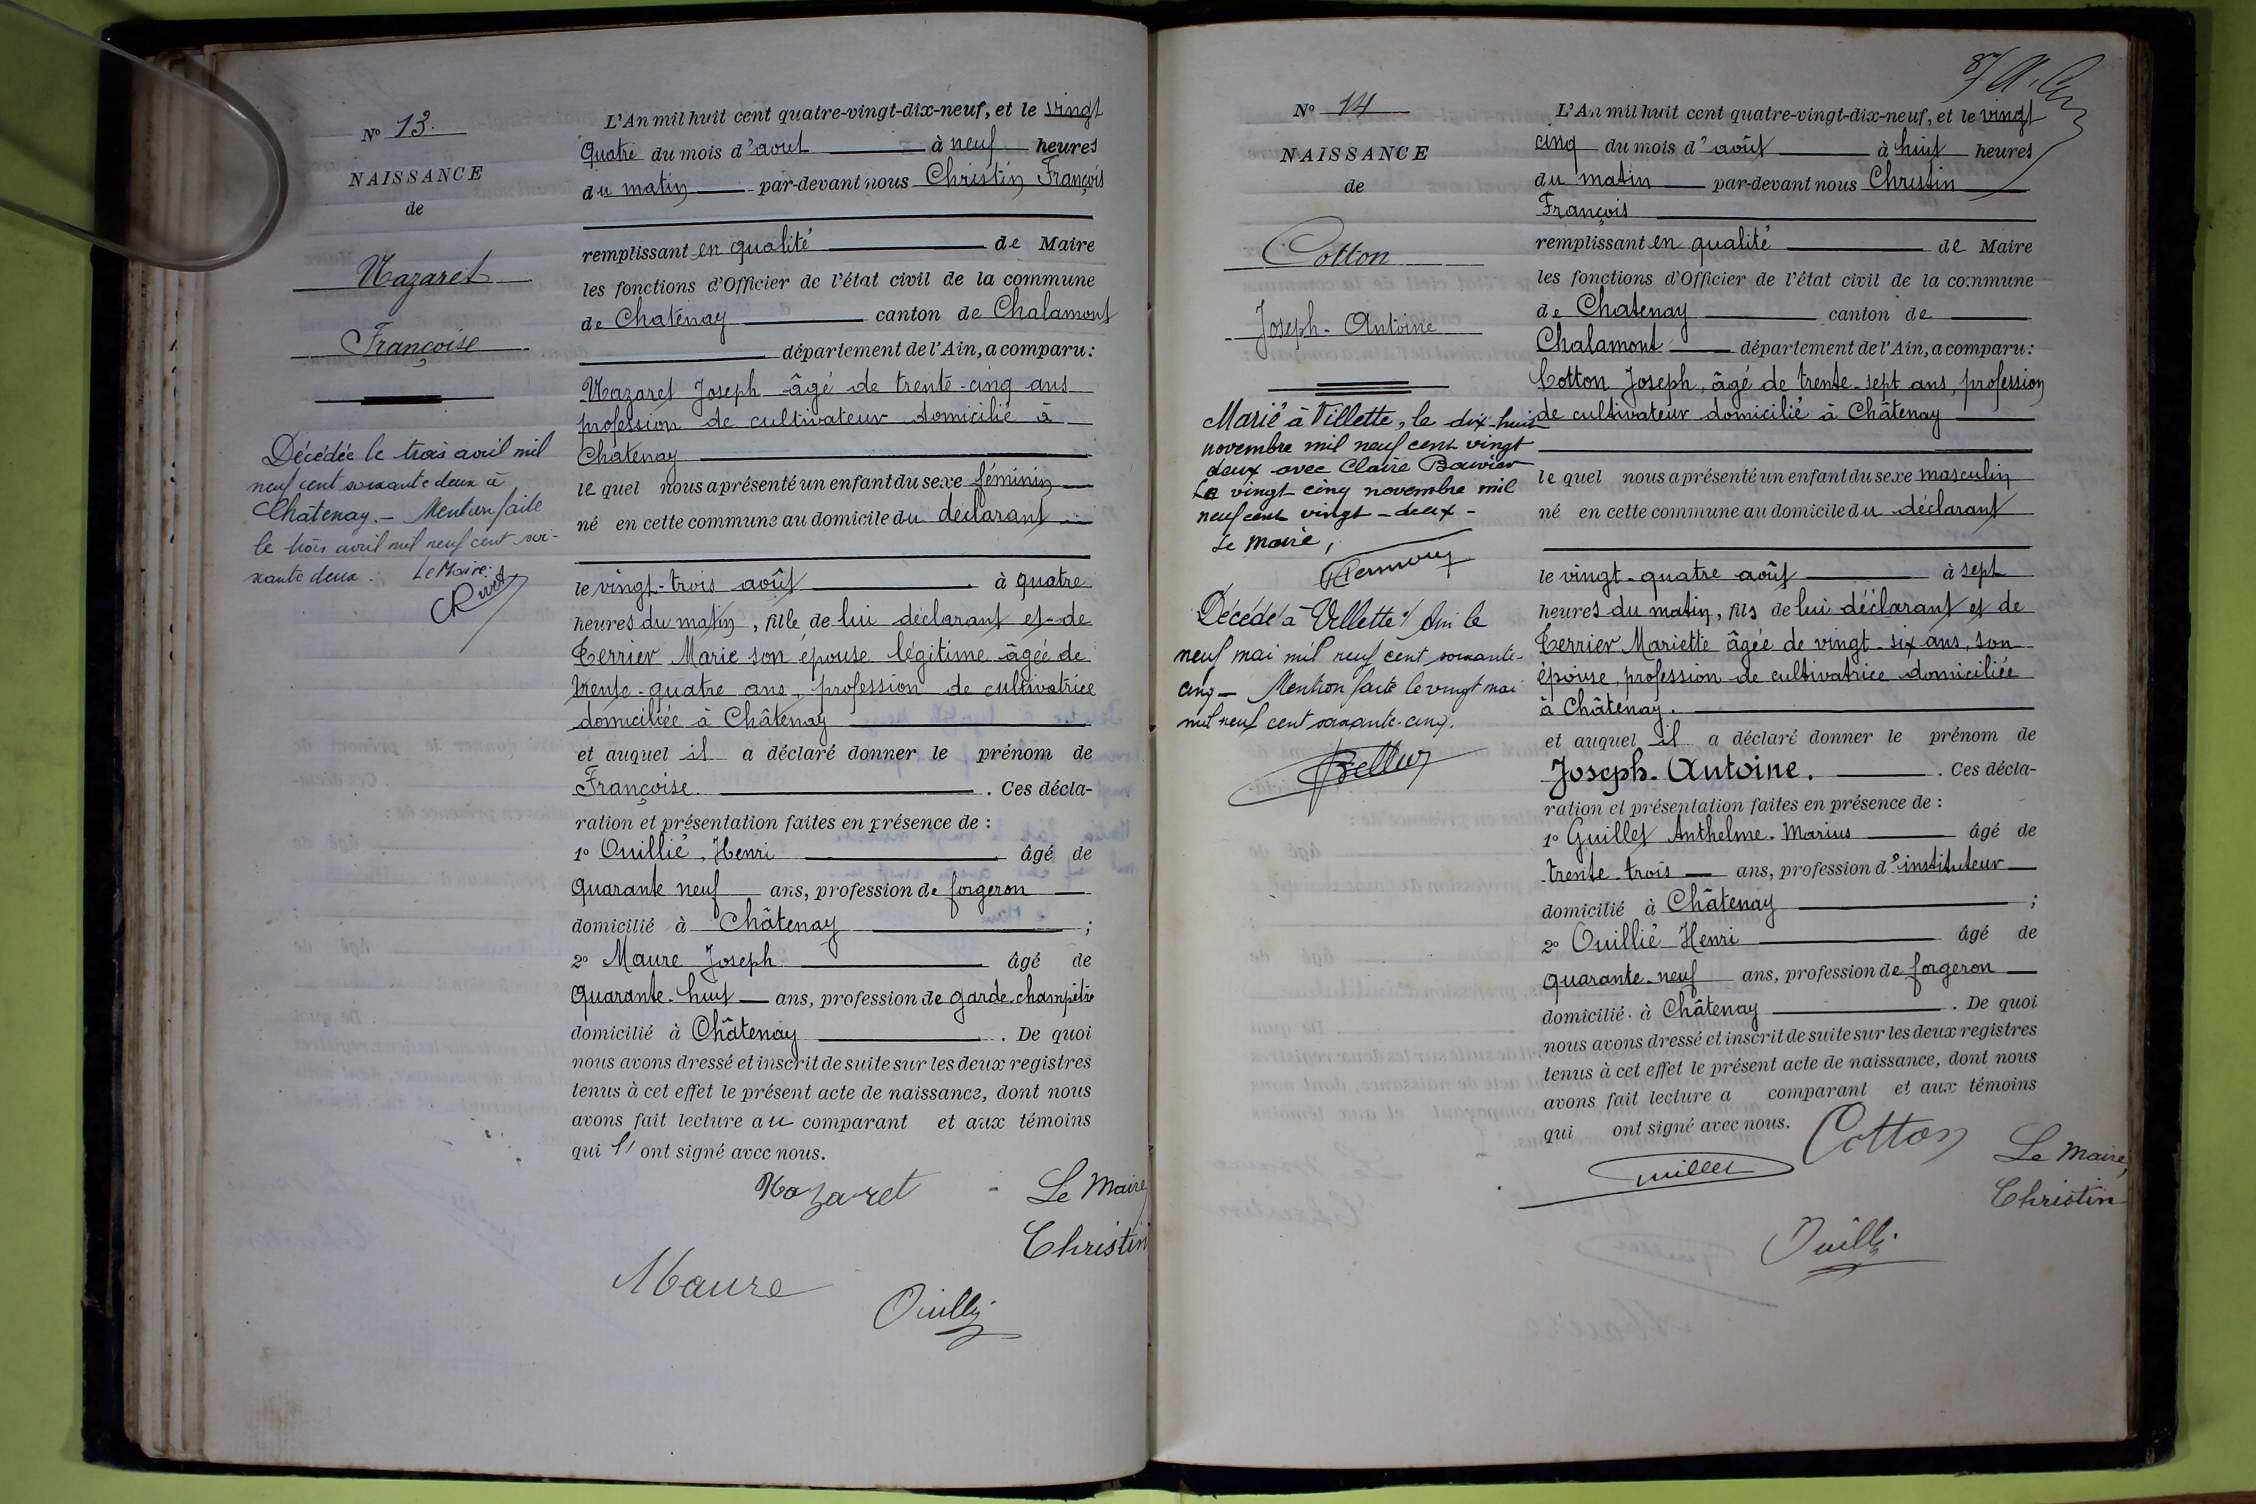 Nº 13.
NAISSANCE
de
Nazaret
Françoise
Décédée le trois avril mil
neuf cent soixante deux à
Châtenay. - Mention faite
le trois avril mil neuf cent soi-
xante deux. Le Maire:
CRivet
L'An mil huit cent quatre-vingt-dix-neuf, et le vingt
quatre du mois d'aout à neuf heures
du matin par-devant nous Christin François
remplissant en qualité de Maire
les fonctions d'Officier de l'état civil de la commune
de Chatenay canton de Chalamont
département de l'Ain, a comparu:
Nazaret Joseph âgé de trente-cinq ans
profession de cultivateur domicilié à
Châtenay
le quel nous a présenté un enfant du sexe féminin
né en cette commune au domicile du déclarant
le vingt-trois août à quatre
heures du matin, fille de lui déclarant et de
Terrier Marie son épouse légitime âgée de
trente-quatre ans, profession de cultivatrice
domiciliée à Châtenay
et auquel il a déclaré donner le prénom de
Françoise. . Ces décla-
ration et présentation faites en présence de :
1º Ouillié, Henri âgé de
quarante neuf ans, profession de forgeron
domicilié à Châtenay ;
2º Maure Joseph âgé de
quarante-huit ans, profession de garde-champêtre
domicilié à Châtenay . De quoi
nous avons dressé et inscrit de suite sur les deux registres
tenus à cet effet le présent acte de naissance, dont nous
avons fait lecture au comparant et aux témoins
qui l' ont signé avec nous.
Nazaret - Le Maire
Christin
Maure
Ouillié
Nº 14
NAISSANCE
de
Cotton
Joseph-Antoine
Marié à Villette, le dix-huit
novembre mil neuf cent vingt
deux avec Claire Bouvier
Le vingt cinq novembre mil
neuf cent vingt-deux-
Le Maire,
Décédé à Villette s/ Ain le
neuf mai mil neuf cent soixante-
cinq - Mention faite le vingt mai
mil neuf cent soixante-cinq.
L'An mil huit cent quatre-vingt-dix-neuf, et le vingt
cinq du mois d'août à huit heures
du matin par-devant nous Christin
François
remplissant en qualité de Maire
les fonctions d'Officier de l'état civil de la commune
de Chatenay canton de
Chalamont département de l'Ain, a comparu:
Cotton Joseph, âgé de trente-sept ans, profession
de cultivateur domicilié à Châtenay
le quel nous a présenté un enfant du sexe masculin
né en cette commune au domicile du déclarant
le vingt-quatre août à sept
heures du matin, fils de lui déclarant et de
Terrier Mariette âgée de vingt-six ans, son
épouse, profession de cultivatrice domiciliée
à Châtenay.
et auquel il a déclaré donner le prénom de
Joseph-Antoine. . Ces décla-
ration et présentation faites en présence de :
1º Guillet Anthelme-Marius âgé de
trente-trois ans, profession d'instituteur
domicilié à Châtenay ;
2º Ouillié Henri âgé de
quarante-neuf ans, profession de forgeron
domicilié à Châtenay . De quoi
nous avons dressé et inscrit de suite sur les deux registres
tenus à cet effet le présent acte de naissance, dont nous
avons fait lecture a comparant et aux témoins
qui ont signé avec nous.
Cotton
Guillet
Le Maire,
Christin
Ouillié